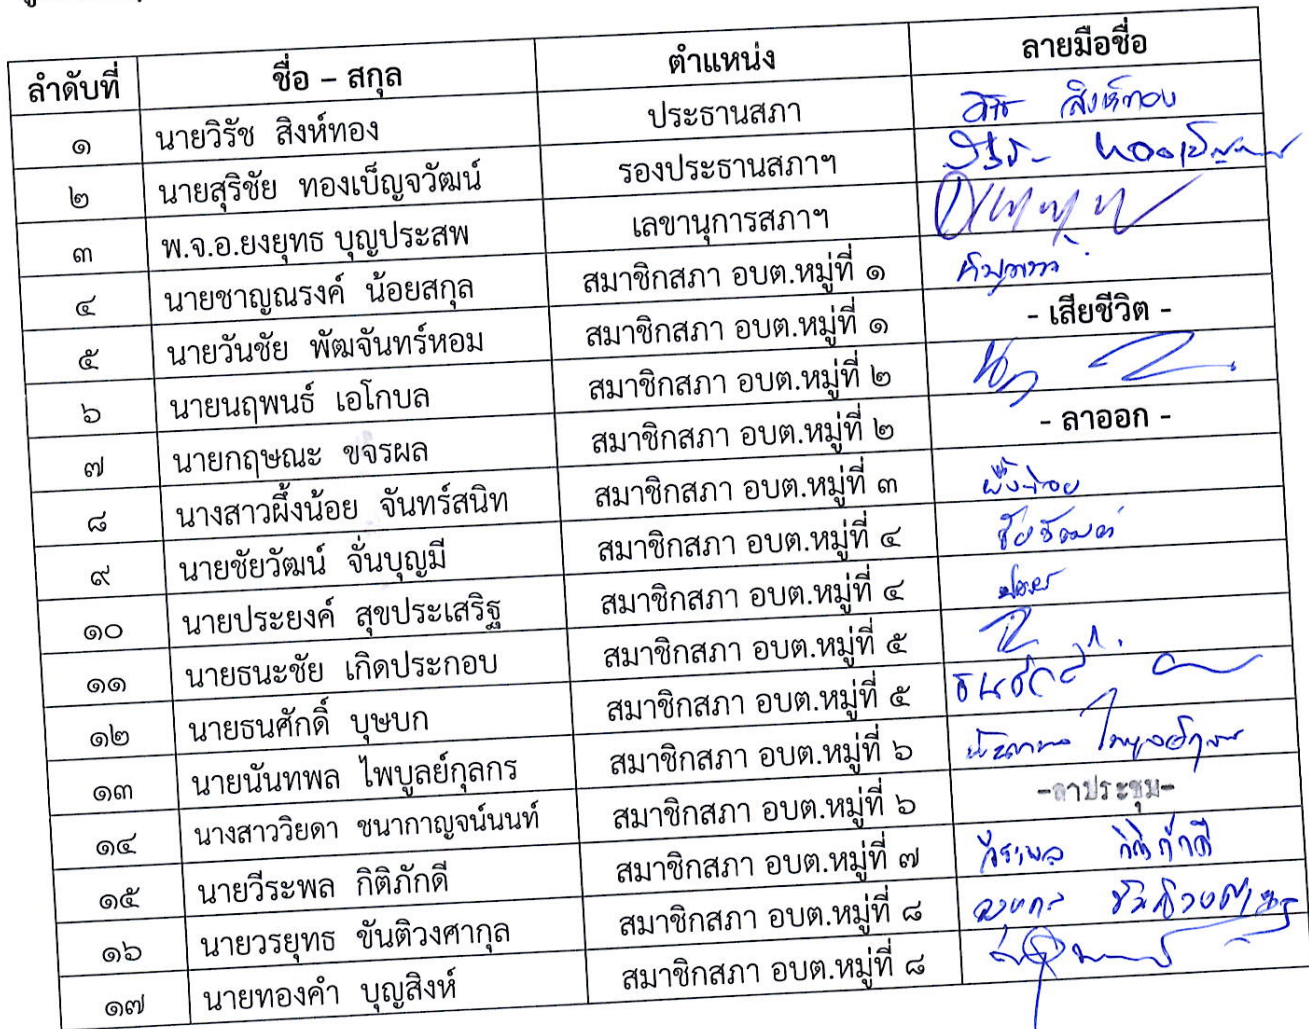 ลำดับที่ ชื่อ – สกุล ตำแหน่ง ลายมือชื่อ
๑ นายวิรัช สิงห์ทอง ประธานสภา สิงห์ทอง
๒ นายสุริชัย ทองเบ็ญจวัฒน์ รองประธานสภาฯ
๓ พ.จ.อ.ยงยุทธ บุญประสพ เลขานุการสภาฯ
๔ นายชาญณรงค์ น้อยสกุล สมาชิกสภา อบต.หมู่ที่ ๑
๕ นายวันชัย พัฒจันทร์หอม สมาชิกสภา อบต.หมู่ที่ ๑ - เสียชีวิต -
๖ นายนฤพนธ์ เอโกบล สมาชิกสภา อบต.หมู่ที่ ๒
๗ นายกฤษณะ ขจิรผล สมาชิกสภา อบต.หมู่ที่ ๒ - ลาออก -
๘ นางสาวผึ้งน้อย จันทร์สนิท สมาชิกสภา อบต.หมู่ที่ ๓ ผึ้งน้อย
๙ นายชัยวัฒน์ จั่นบุญมี สมาชิกสภา อบต.หมู่ที่ ๔ ชัยวัฒน์
๑๐ นายประยงค์ สุขประเสริฐ สมาชิกสภา อบต.หมู่ที่ ๔
๑๑ นายธนะชัย เกิดประกอบ สมาชิกสภา อบต.หมู่ที่ ๕
๑๒ นายธนศักดิ์ บุษบก สมาชิกสภา อบต.หมู่ที่ ๕ ธนศักดิ์
๑๓ นายนันทพล ไพบูลย์กุลกร สมาชิกสภา อบต.หมู่ที่ ๖
๑๔ นางสาววิยดา ชนากาญจน์นนท์ สมาชิกสภา อบต.หมู่ที่ ๖ -ลาประชุม-
๑๕ นายวีระพล กิติภักดี สมาชิกสภา อบต.หมู่ที่ ๗ วีระพล กิติภักดี
๑๖ นายวรยุทธ ขันติวงศากุล สมาชิกสภา อบต.หมู่ที่ ๘
๑๗ นายทองคำ บุญสิงห์ สมาชิกสภา อบต.หมู่ที่ ๘